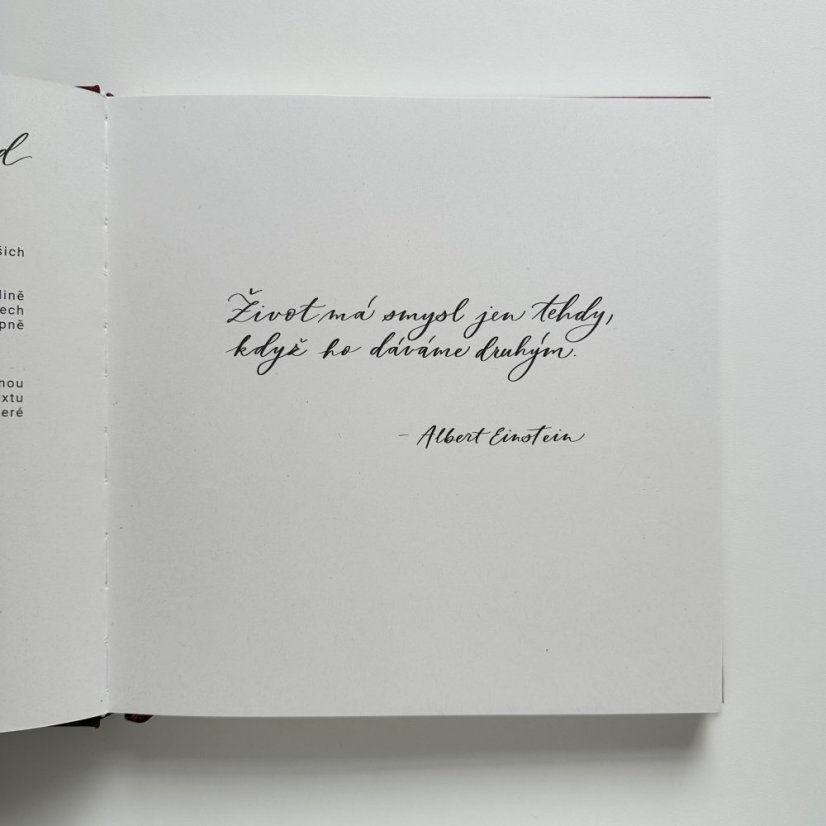 d
šich
lině
ech
pně
nou
xtu
eré
Život má smysl jen tehdy,
když ho dáváme druhým.
– Albert Einstein